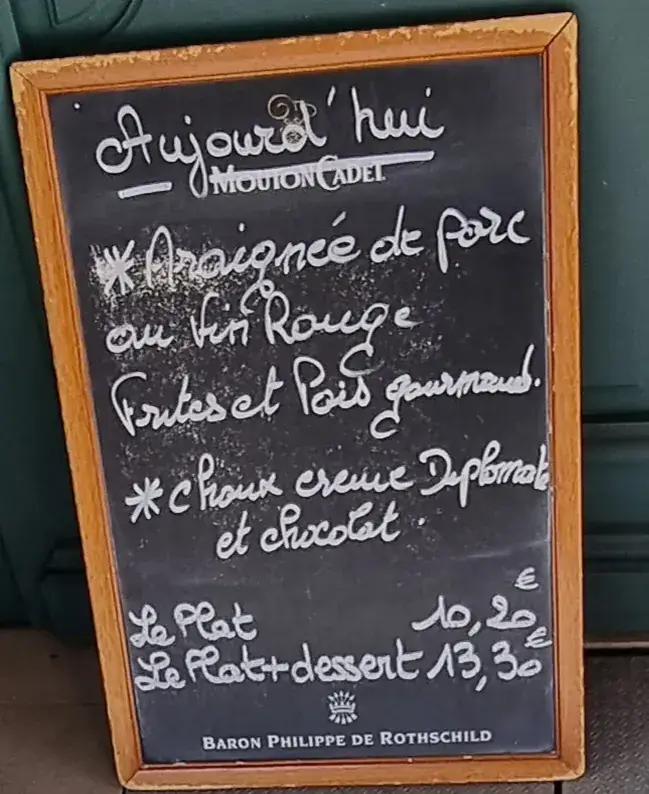 Aujourd'hui
MOUTON CADET
* Araignée de porc
au vin Rouge
Frites et Pois gourmands.
* choux creme Diplomate
et chocolat.
€
Le Plat 10,20
€
Le Plat + dessert 13,30
BARON PHILIPPE DE ROTHSCHILD